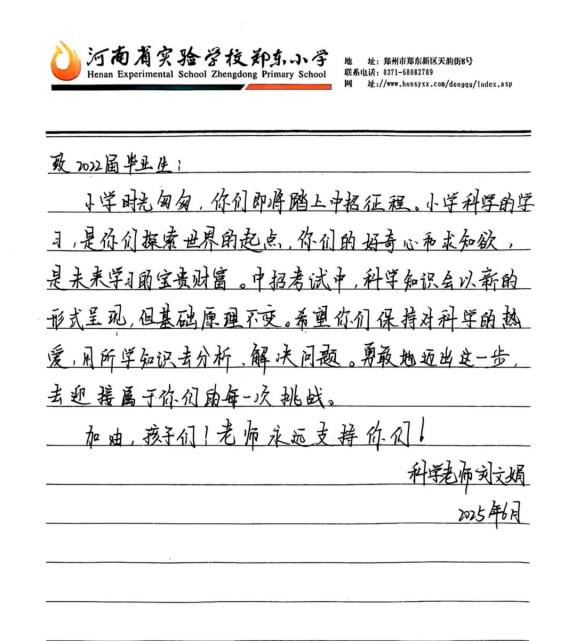 河南省实验学校郑东小学
Henan Experimental School Zhengdong Primary School
地 址:郑州市郑东新区天韵街8号
联系电话:0371-68082789
网 址://www.hnssyxx.com/dongqu/index.asp
致2022届毕业生:
小学时光匆匆,你们即将踏上中招征程。小学科学的学
习,是你们探索世界的起点,你们的好奇心和求知欲,
是未来学习的宝贵财富。中招考试中,科学知识会以新的
形式呈现,但基础原理不变。希望你们保持对科学的热
爱,用所学知识去分析、解决问题。勇敢地迈出这一步,
去迎接属于你们的每一次挑战。
加油,孩子们!老师永远支持你们!
科学老师刘文娟
2025年6月